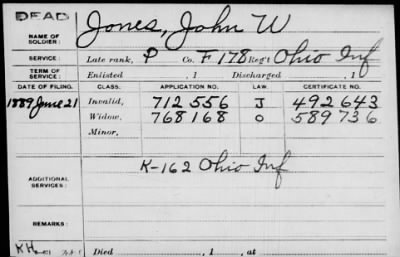 DEAD
NAME OF SOLDIER: Jones, John W
SERVICE: Late rank, P Co. F 178 Reg't Ohio Inf
TERM OF SERVICE: Enlisted , 1 Discharged , 1
DATE OF FILING. CLASS. APPLICATION NO. LAW. CERTIFICATE NO.
1889 June 21 Invalid, 712 556 J 492 643
Widow, 768 168 O 589 736
Minor,
ADDITIONAL SERVICES: K-162 Ohio Inf
REMARKS:
KH Died , 1 , at